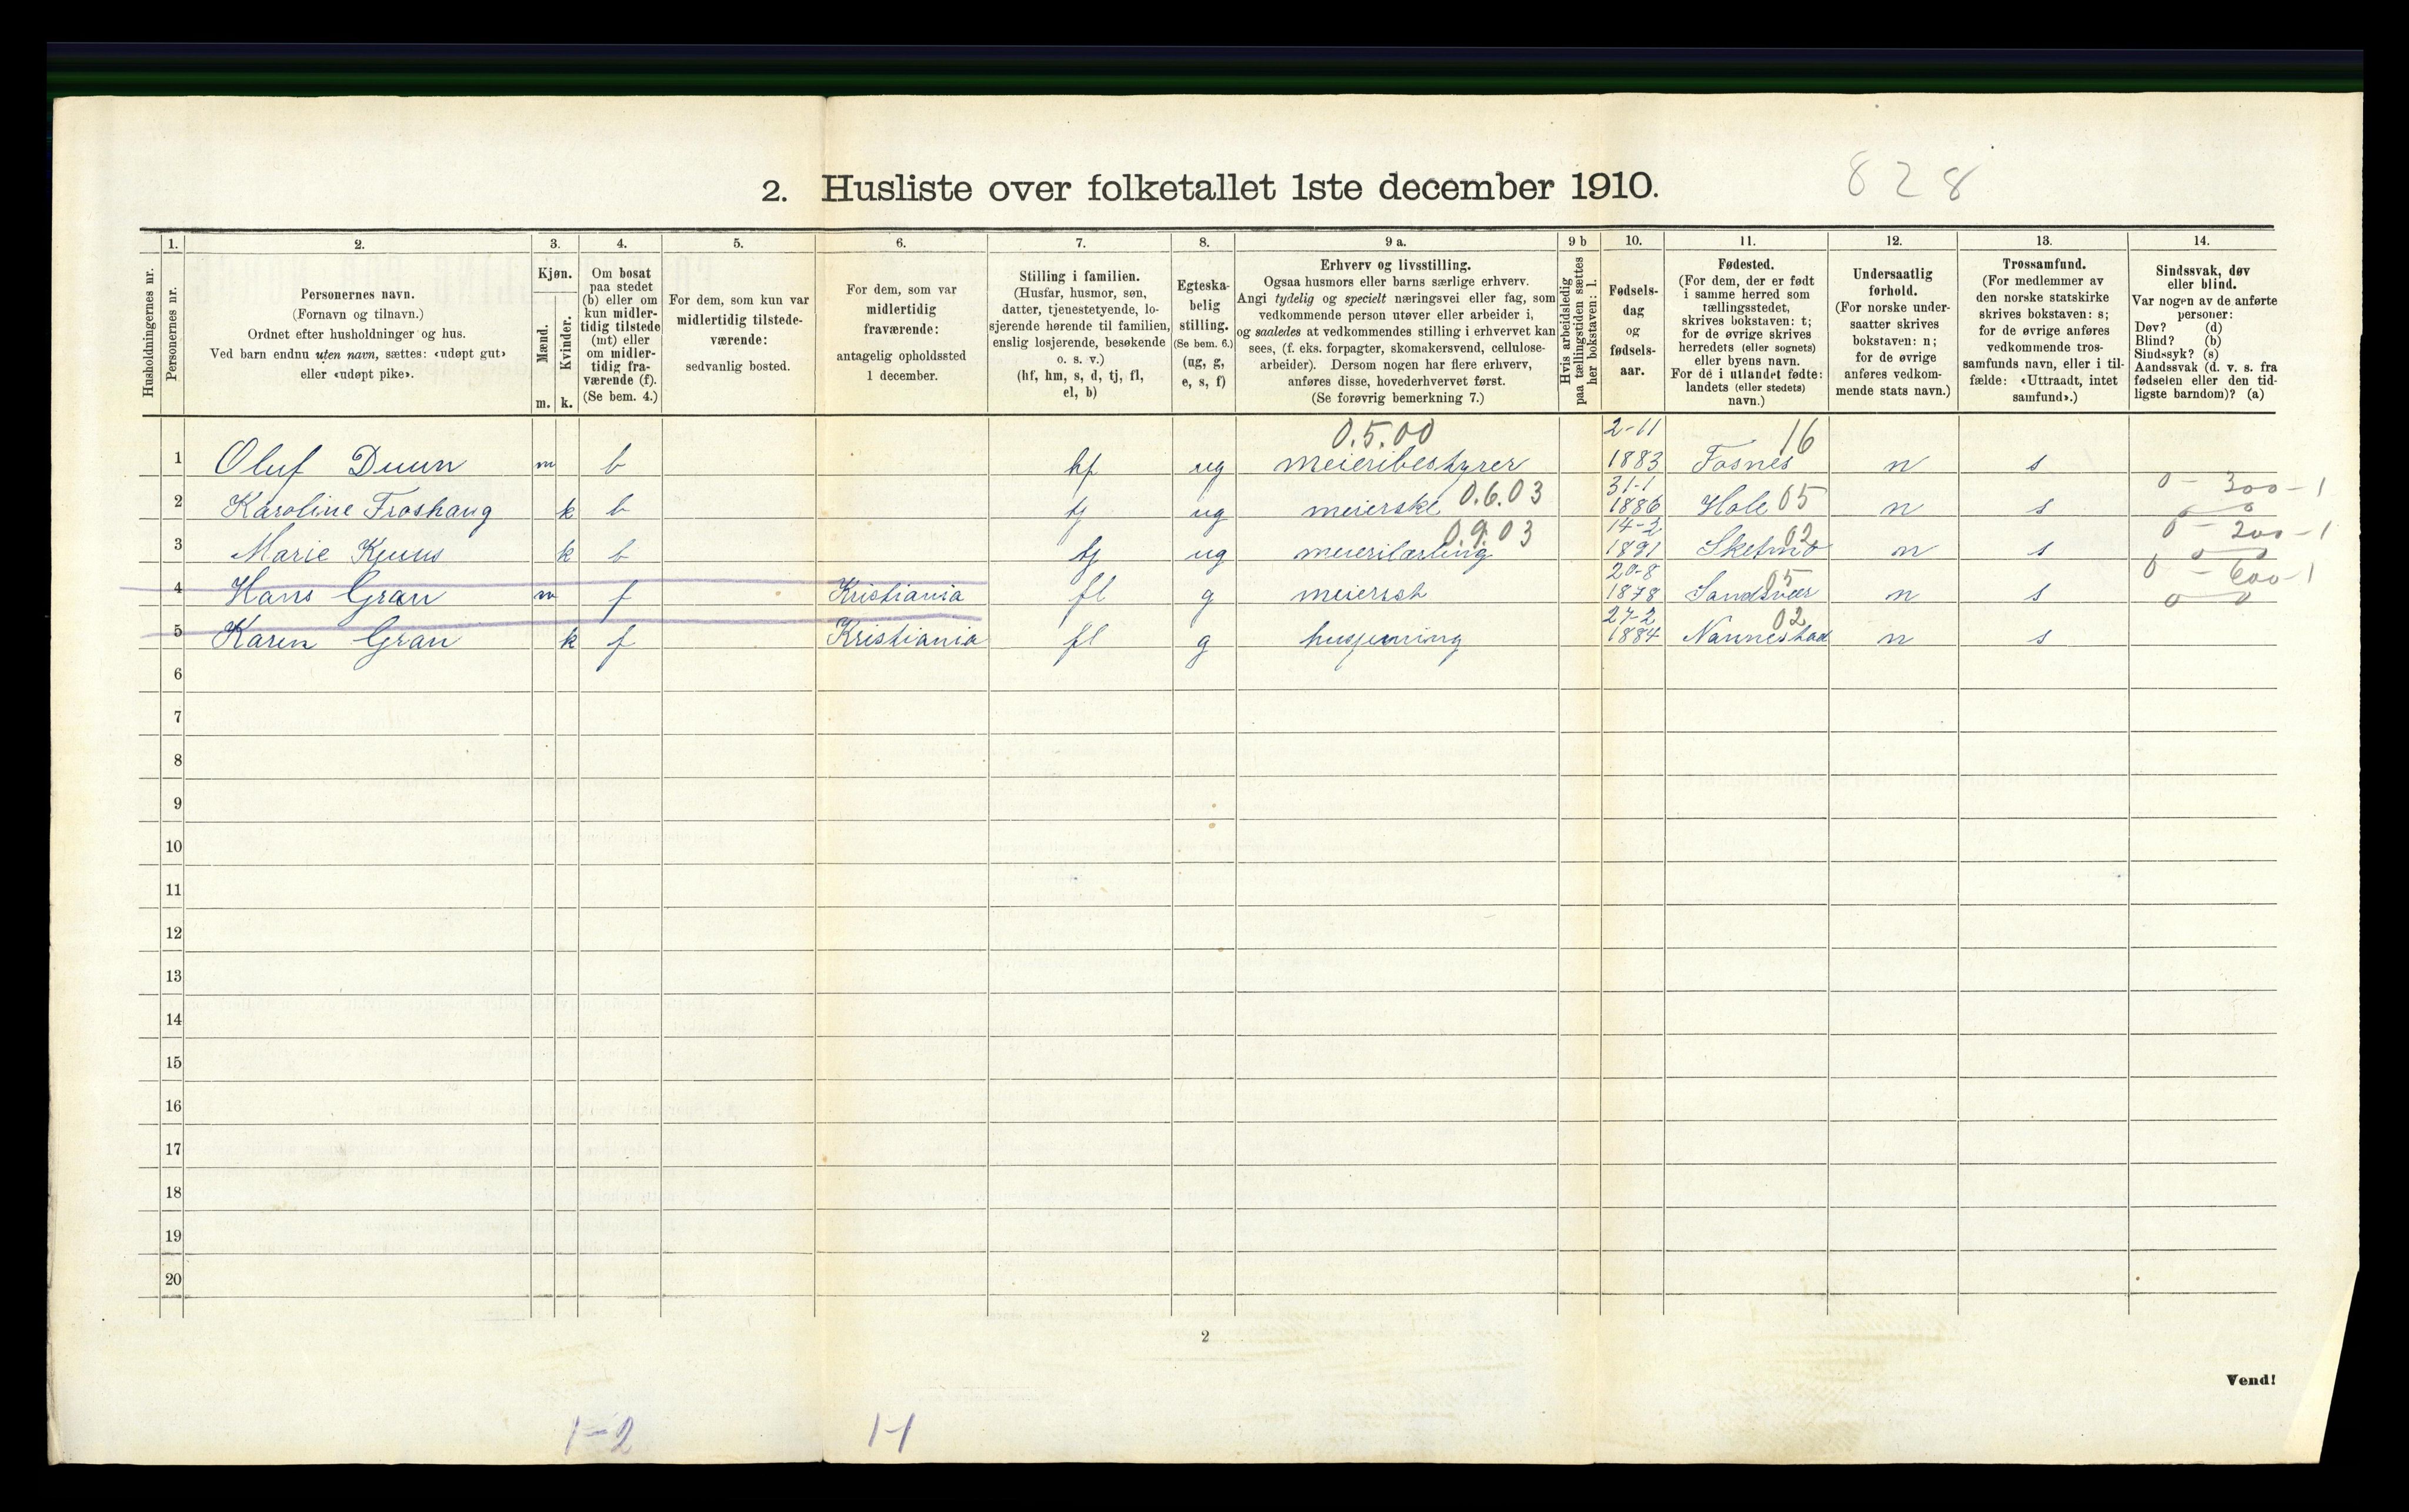 2. Husliste over folketallet 1ste december 1910. 828
Husholdningernes nr.
1. Personernes nr.
2. Personernes navn.
(Fornavn og tilnavn.)
Ordnet efter husholdninger og hus.
Ved barn endnu uten navn, sættes: «udøpt gut»
eller «udøpt pike».
3. Kjøn.
Mænd. m.
Kvinder. k.
4. Om bosat
paa stedet
(b) eller om
kun midler-
tidig tilstede
(mt) eller
om midler-
tidig fra-
værende (f).
(Se bem. 4.)
5. For dem, som kun var
midlertidig tilstede-
værende:
sedvanlig bosted.
6. For dem, som var
midlertidig
fraværende:
antagelig opholdssted
1 december.
7. Stilling i familien.
(Husfar, husmor, søn,
datter, tjenestetyende, lo-
sjerende hørende til familien,
enslig losjerende, besøkende
o. s. v.)
(hf, hm, s, d, tj, fl,
el, b)
8. Egteska-
belig
stilling.
(Se bem. 6.)
(ug, g,
e, s, f)
9 a. Erhverv og livsstilling.
Ogsaa husmors eller barns særlige erhverv.
Angi tydelig og specielt næringsvei eller fag, som
vedkommende person utøver eller arbeider i,
og saaledes at vedkommendes stilling i erhvervet kan
sees, (f. eks. forpagter, skomakersvend, cellulose-
arbeider). Dersom nogen har flere erhverv,
anføres disse, hovederhvervet først.
(Se forøvrig bemerkning 7.)
9 b Hvis arbeidsledig
paa tællingstiden sættes
her bokstaven: l.
10. Fødsels-
dag
og
fødsels-
aar.
11. Fødested.
(For dem, der er født
i samme herred som
tællingsstedet,
skrives bokstaven: t;
for de øvrige skrives
herredets (eller sognets)
eller byens navn.
For de i utlandet fødte:
landets (eller stedets)
navn.)
12. Undersaatlig
forhold.
(For norske under-
saatter skrives
bokstaven: n;
for de øvrige
anføres vedkom-
mende stats navn.)
13. Trossamfund.
(For medlemmer av
den norske statskirke
skrives bokstaven: s;
for de øvrige anføres
vedkommende tros-
samfunds navn, eller i til-
fælde: «Uttraadt, intet
samfund».)
14. Sindssvak, døv
eller blind.
Var nogen av de anførte
personer:
Døv? (d)
Blind? (b)
Sindssyk? (s)
Aandssvak (d. v. s. fra
fødselen eller den tid-
ligste barndom)? (a)
0.5.00 2-11 16
1 Oluf Duun m b hf ug meieribestyrer 1883 Fosnes n s
31-1 0 - 300 - 1
2 Karoline Froshaug k b tj ug meierske 0.6.03 1886 Hole 05 n s 0 0
0.9.03 14-2 02 0 - 200 - 1
3 Marie k b tj ug meierilærling 1891 n s 0 0
20-8 05 0 - 600 - 1
4 Hans Gran m f Kristiania fl g meierist 1878 Sandsvær n s 0 0
27-2 02
5 Karen Gran k f Kristiania fl g husgjerning 1884 Nannestad n s
6
7
8
9
10
11
12
13
14
15
16
17
18
19
20
2
Vend!
1-2 1-1